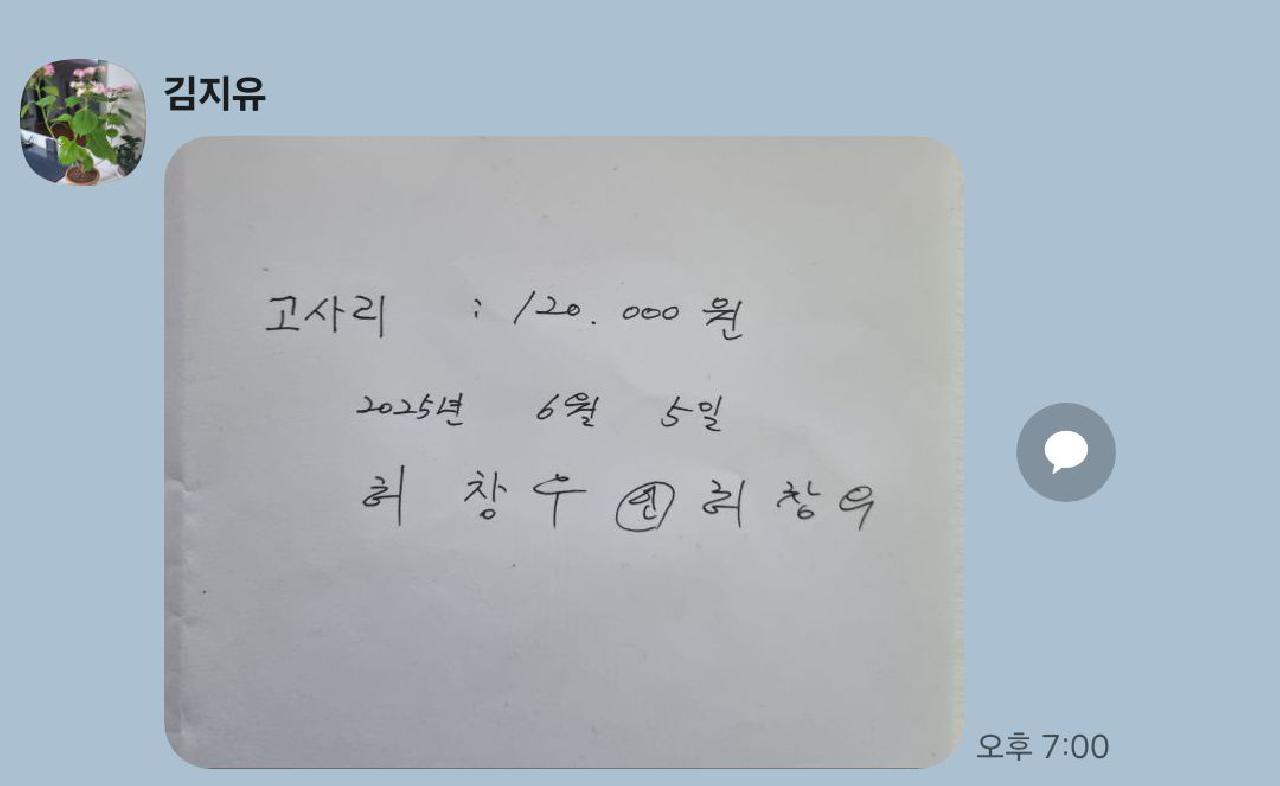 김지유
고사리 : 120.000원
2025년 6월 5일
허 창 우 ㊞ 허 창 우
오후 7:00